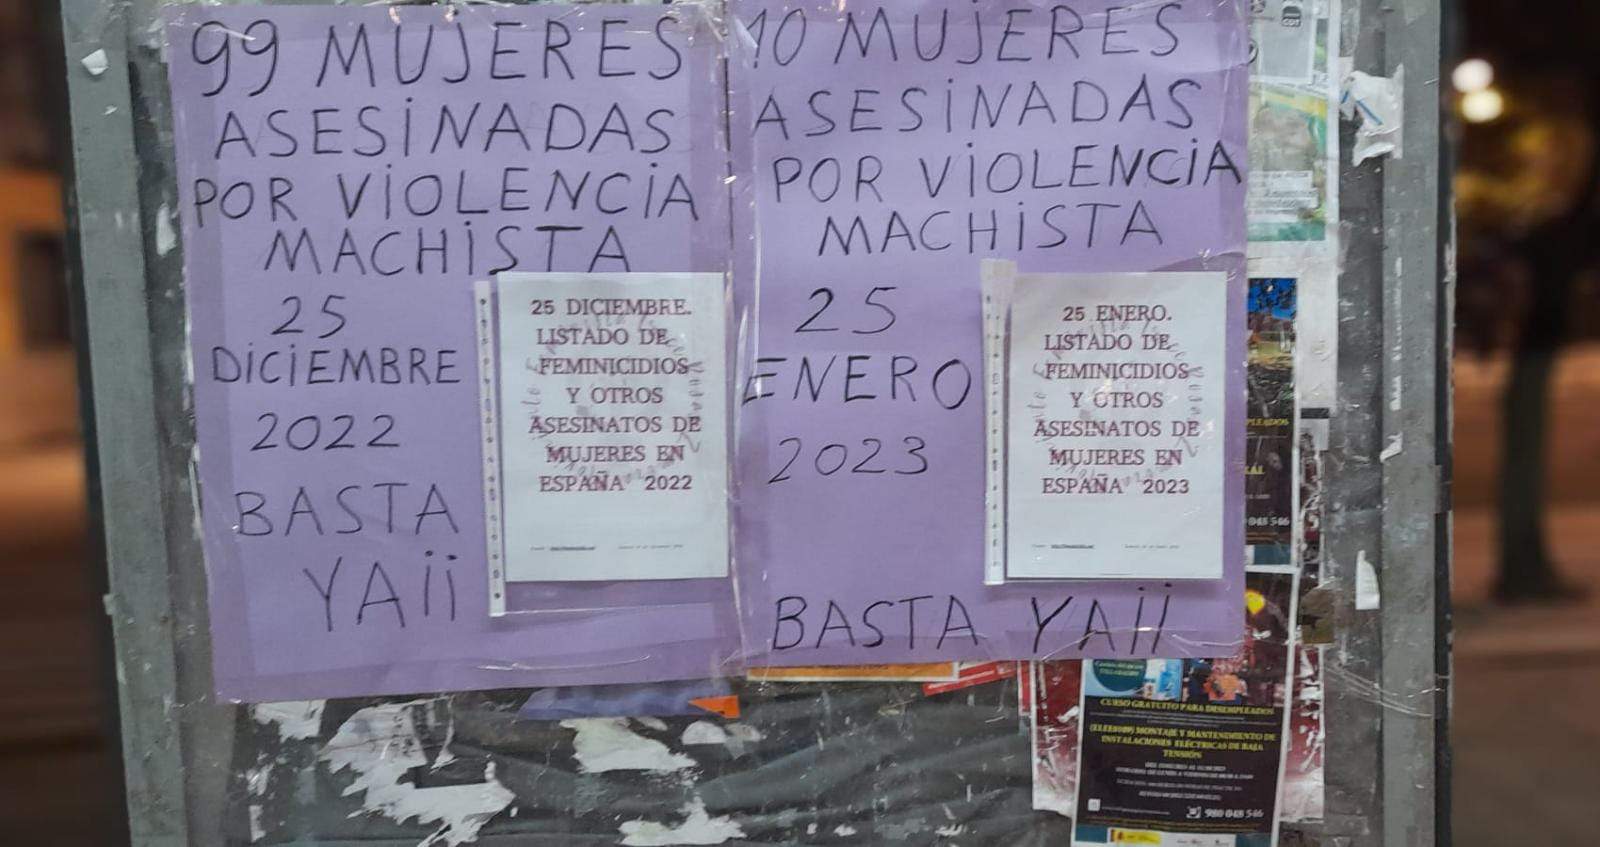 99 MUJERES
ASESiNADAS
POR ViOLENCiA
MACHiSTA
25
DiCiEMBRE
2022
BASTA
YA¡¡
25 DICIEMBRE.
LISTADO DE
FEMINICIDIOS
Y OTROS
ASESINATOS DE
MUJERES EN
ESPAÑA 2022
10 MUJERES
ASESiNADAS
POR ViOLENCiA
MACHiSTA
25
ENERO
2023
BASTA YA¡¡
25 ENERO.
LISTADO DE
FEMINICIDIOS
Y OTROS
ASESINATOS DE
MUJERES EN
ESPAÑA 2023
CGT
048 546
CURSO GRATUITO PARA DESEMPLEADOS
MONTAJE Y MANTENIMIENTO DE
INSTALACIONES ELÉCTRICAS DE BAJA
TENSIÓN
980 048 546